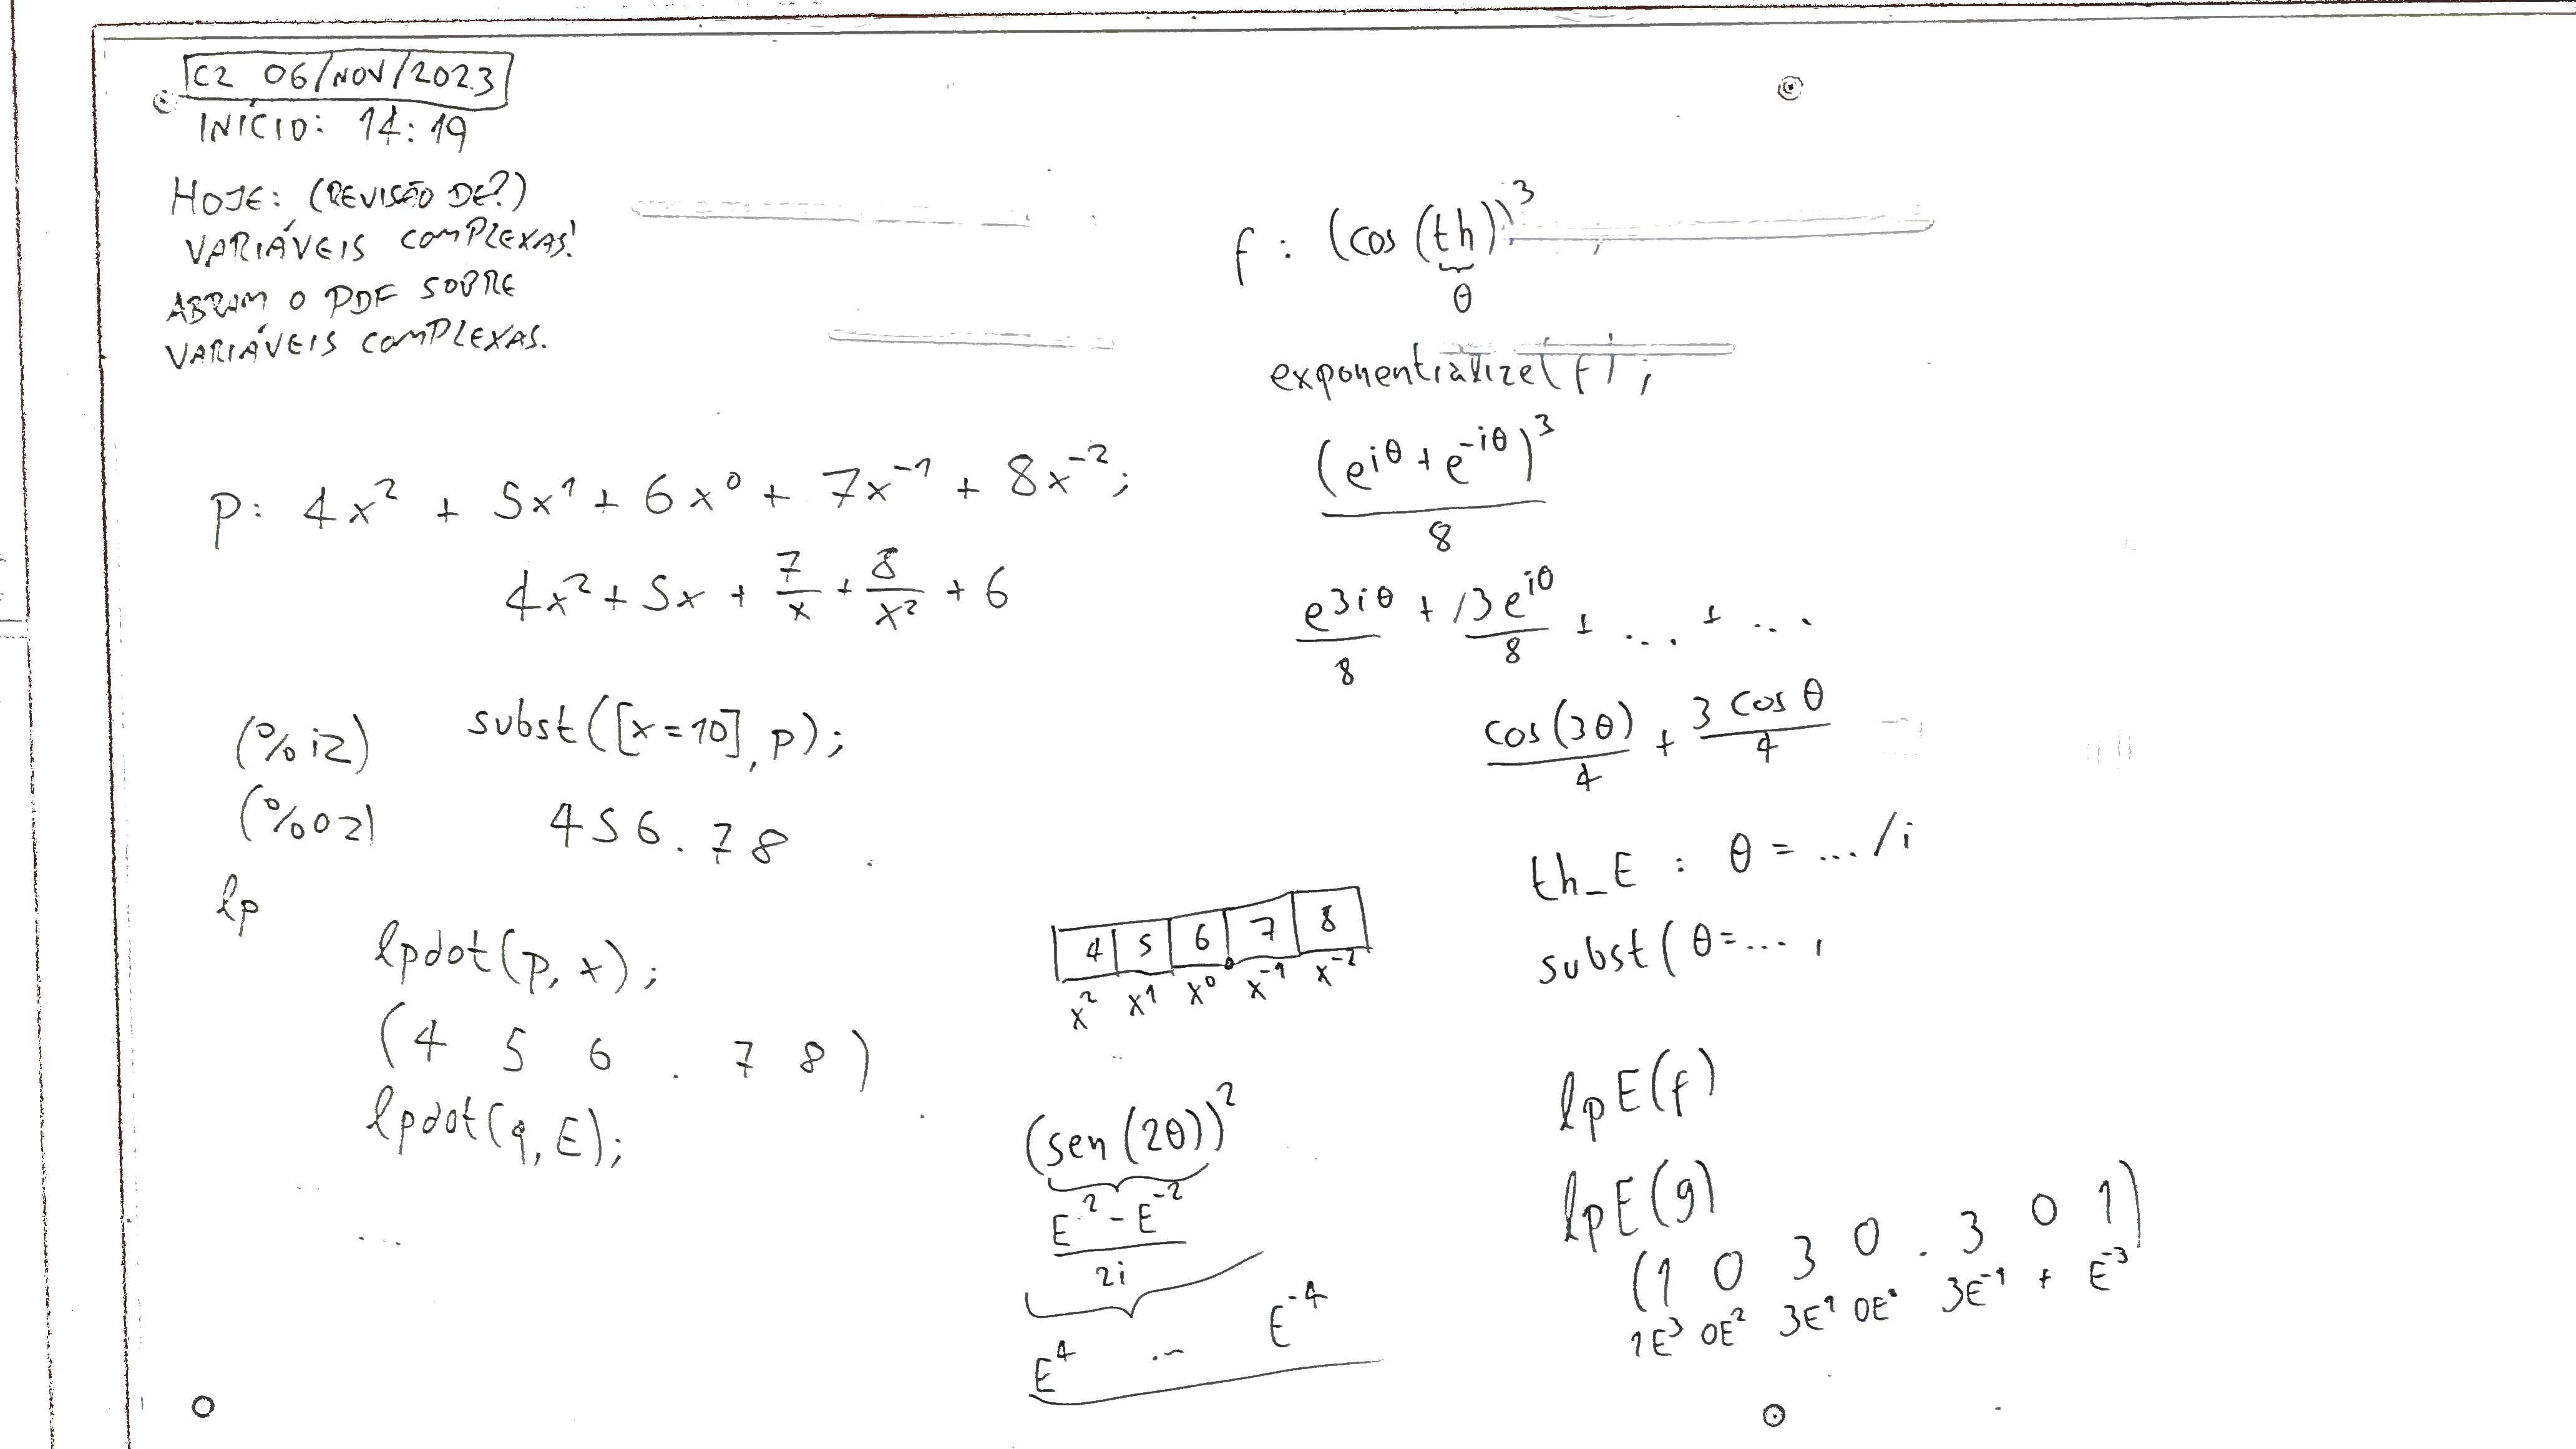 C2 06/NOV/2023
INÍCIO: 14:19
HOJE: (REVISÃO DE?)
VARIÁVEIS COMPLEXAS!
ABRAM O PDF SOBRE
VARIÁVEIS COMPLEXAS.
p: 4x² + 5x¹ + 6x⁰ + 7x⁻¹ + 8x⁻²;
4x² + 5x + 7/x + 8/x² + 6
(%i2) subst([x=10], p);
(%o2) 456.78
lp
lpdot(p, x);
(4 5 6 . 7 8)
lpdot(q, E);
...
4 5 6 . 7 8
x² x¹ x⁰ x⁻¹ x⁻²
(sen(2θ))²
E² - E⁻²
2i
E⁴ ... E⁻⁴
f : (cos(th))³
θ
exponentialize(f);
(e^{iθ} + e^{-iθ})³
8
e^{3iθ}/8 + 3e^{iθ}/8 + ... + ...
cos(3θ)/4 + 3 cos θ/4
th_E : θ = .../i
subst(θ=...,
lpE(f)
lpE(g)
(1 0 3 0 . 3 0 1)
1E³ 0E² 3E¹ 0E⁰ 3E⁻¹ + E⁻³